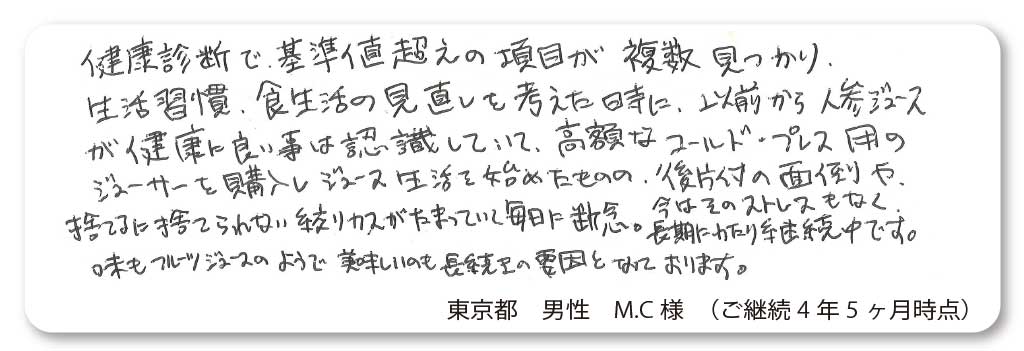 健康診断で、基準値超えの項目が 複数 見つかり、
生活習慣、食生活の見直しを考えた時に、以前から人参ジュース
が健康に良い事は認識していて、高額なコールド・プレス用の
ジューサーを購入しジュース生活を始めたものの、後片付の面倒や、
捨てるに捨てられない絞りカスがたまっていく毎日に断念。今はそのストレスもなく、
長期にわたり継続中です。
味もフルーツジュースのようで美味しいのも長続きの要因となっております。
東京都　男性　M.C 様　（ご継続 4 年 5 ヶ月時点）